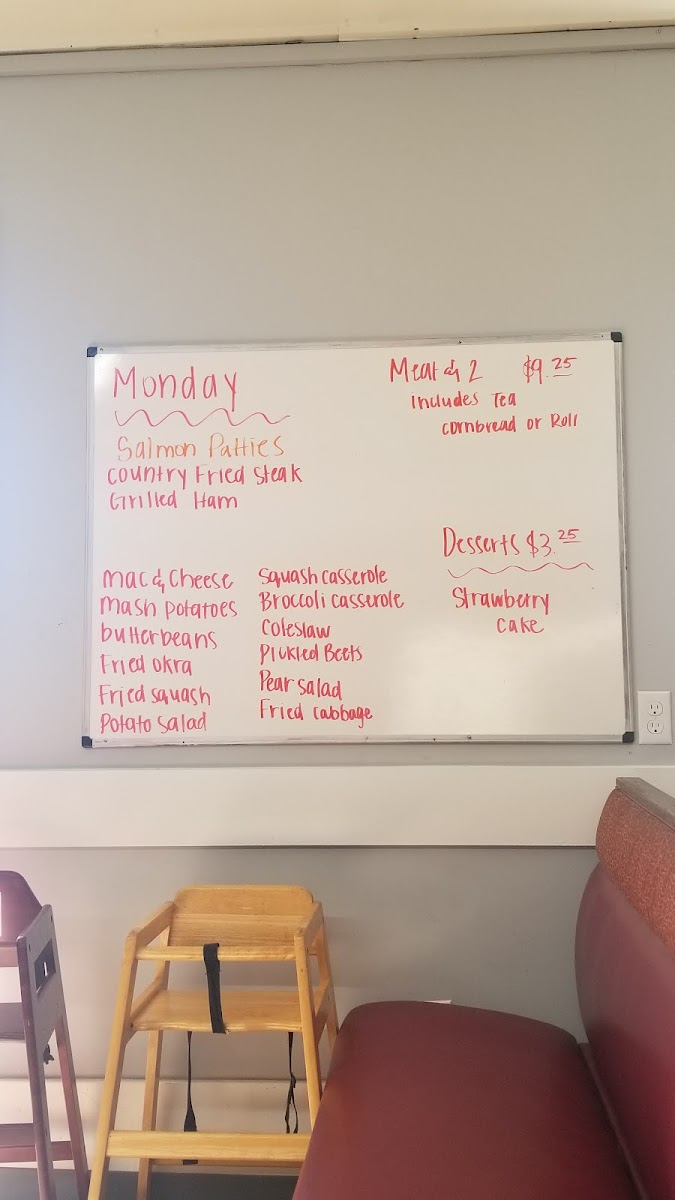 Monday
Salmon Patties
Country Fried Steak
Grilled Ham
Meat & 2 $9.25
Includes Tea
cornbread or Roll
mac & cheese
mash potatoes
butterbeans
Fried okra
Fried squash
Potato salad
Squash casserole
Broccoli casserole
Coleslaw
Pickled Beets
Pear salad
Fried cabbage
Desserts $3.25
Strawberry
cake